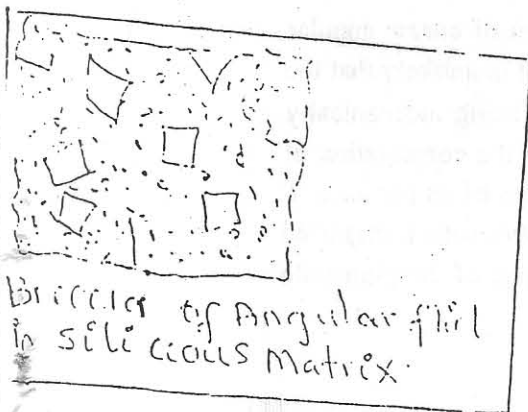 Briccia of Angular flil
in silicious Matrix.